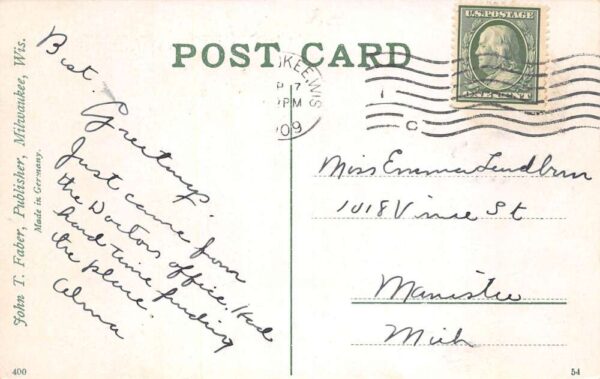 POST CARD
U.S. POSTAGE
KEE, WIS
P 7
PM
09
1
C
John T. Faber, Publisher, Milwaukee, Wis.
Made in Germany.
Best.
Greetings.
Just came from
the Doctors office. Had
hard time finding
the place.
Alma
Miss Emma Lindbom
1018 Vine St
Manistee
Mich
400
54